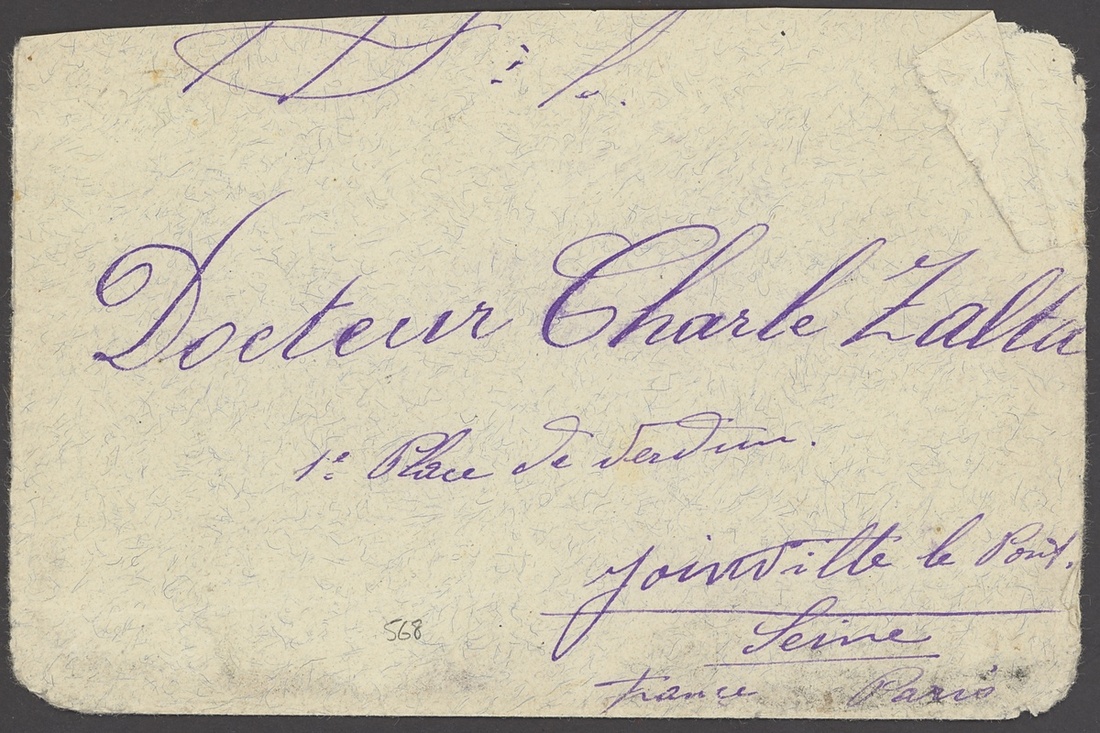 Docteur Charle Zalta
1e Place de Verdun.
Joinville le Pont.
Seine
568
France Paris